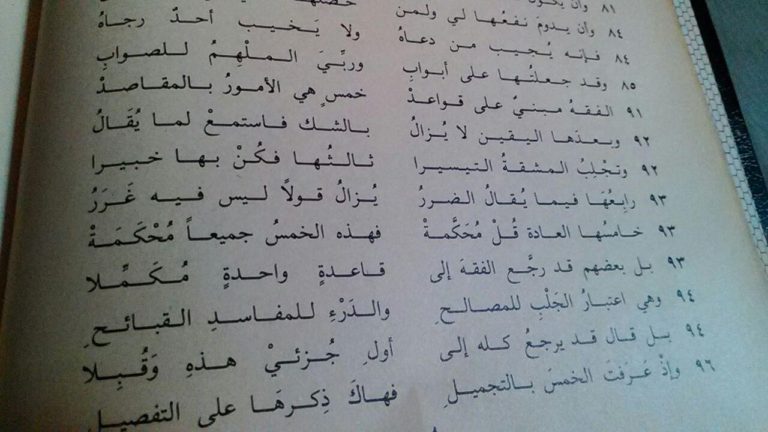 ٨١ وأن يكون
٨٤ وأن يدومَ نفعُها لي ولمن
٨٤ فإنه يُجيب من دعاهُ ولا يَخيب أحدٌ رجاهُ
٨٥ وقد جعلتُها على أبوابِ وربِّيَ الملْهِمُ للصوابِ
٩١ الفقهُ مبنيٌ على قواعدْ خمسٍ هي الأمورُ بالمقاصدْ
٩٢ وبعدَها اليقين لا يُزالُ بالشك فاستمعْ لما يُقَالُ
٩٢ وتجْلِبُ المشقةُ التيسيرا ثالثُها فكُنْ بها خبيرا
٩٣ رابِعُهَا فيما يُقالُ الضررُ يُزالُ قولاً ليس فيه غَرَرُ
٩٣ خامسُها العادة قُلْ مُحَكَّمةْ فهذه الخمسُ جميعاً مُحْكَمَةْ
٩٣ بل بعضهم قد رجَّع الفقهَ إلى قاعدةٍ واحدةٍ مُكَمِّلا
٩٤ وهي اعتبارُ الجَلْبِ للمصالحِ والدَرْءِ للمفاسدِ القبائحِ
٩٤ بل قال قد يرجعُ كله إلى أولِ جُزئيْ هذهِ وَقُبِلا
٩٦ وإذْ عَرَفتَ الخمسَ بالتجميلِ فهاكَ ذِكرهَا على التفصيلِ